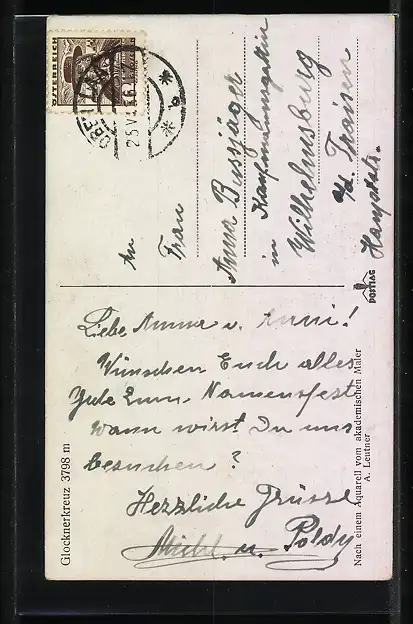 ÖSTERREICH
An
Frau
Anna Bussjäger
Kaufmannsgattin
in
Wilhelmsburg
a/d. Traisen
Hauptstr.
Liebe Anna u. Anni!
Wünschen Euch alles
Gute zum Namensfest
wann wirst Du uns
besuchen?
Herzliche Grüsse
Michl u. Poldy
Glocknerkreuz 3798 m
Nach einem Aquarell vom akademischen Maler
A. Leutner